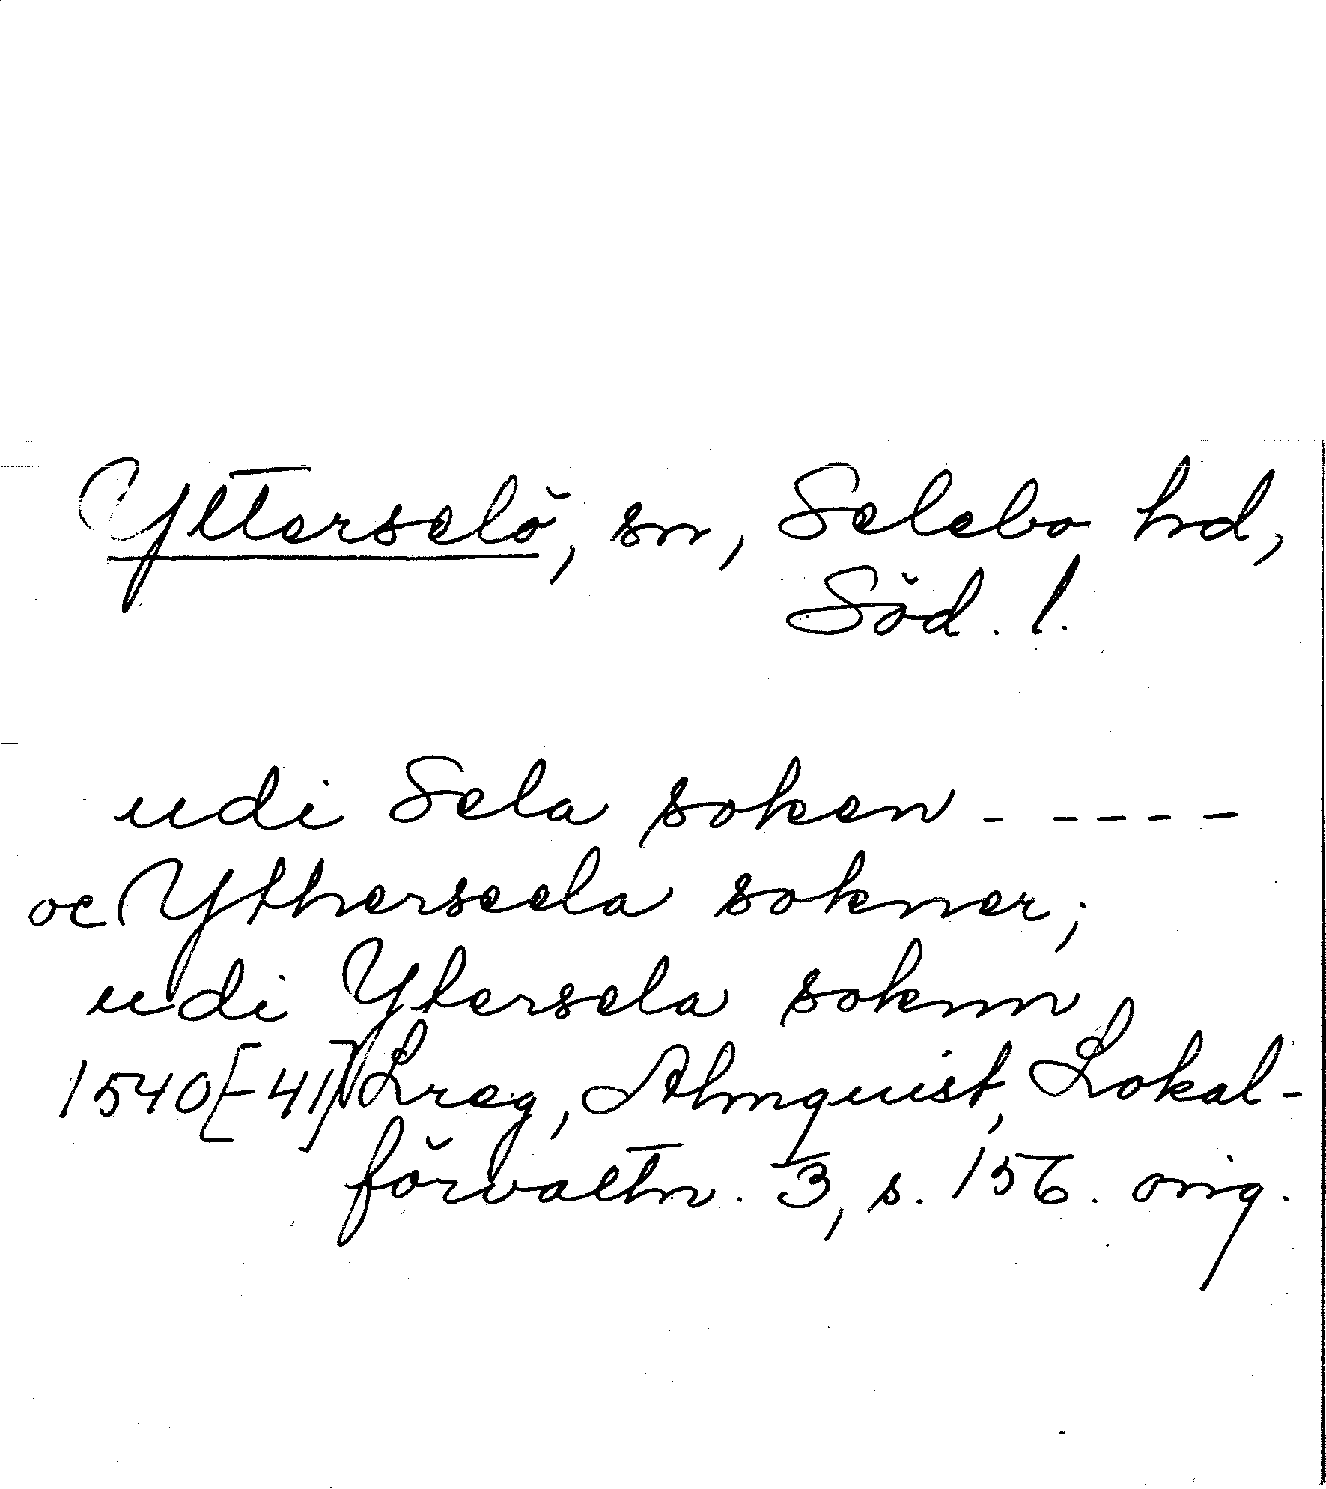 Ytterselö, sn, Selebo hd,
Söd. l.
udi Sela soken - - - - - -
oc Ytherseela sokner;
udi Ytersela soknn
1540[-41] Lreg, Almquist, Lokal-
förvaltn. 3, s. 156. orig.